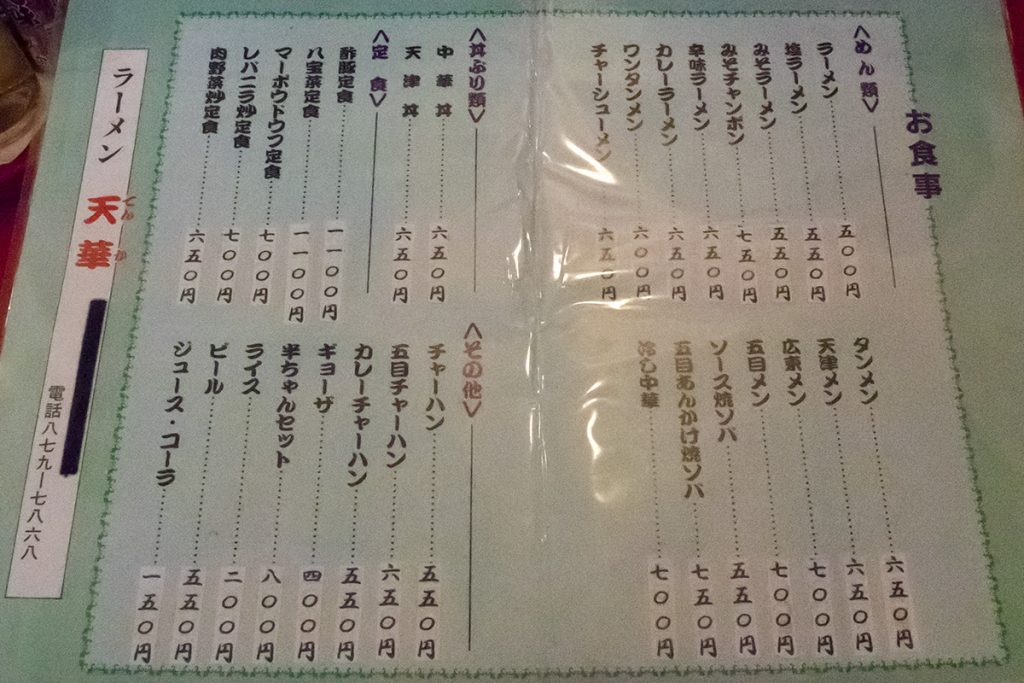 お食事
<めん類>
ラーメン……五〇〇円
塩ラーメン……五五〇円
みそラーメン……五五〇円
みそチャンポン……七五〇円
辛味ラーメン……六五〇円
カレーラーメン……六五〇円
ワンタンメン……六〇〇円
チャーシューメン……六五〇円
タンメン……六五〇円
天津メン……六五〇円
広東メン……七〇〇円
五目メン……七〇〇円
ソース焼ソバ……五五〇円
五目あんかけ焼ソバ……七五〇円
冷し中華……七〇〇円
<丼ぶり類>
中華丼……六五〇円
天津丼……六五〇円
<定食>
酢豚定食……一一〇〇円
八宝菜定食……一一〇〇円
マーボウドウフ定食……七〇〇円
レバニラ炒定食……七〇〇円
肉野菜炒定食……六五〇円
<その他>
チャーハン……五五〇円
五目チャーハン……六五〇円
カレーチャーハン……五五〇円
ギョーザ……四〇〇円
半ちゃんセット……八〇〇円
ライス……二〇〇円
ビール……五五〇円
ジュース・コーラ……一五〇円
ラーメン 天華 てんか
電話八七九ー七八六八